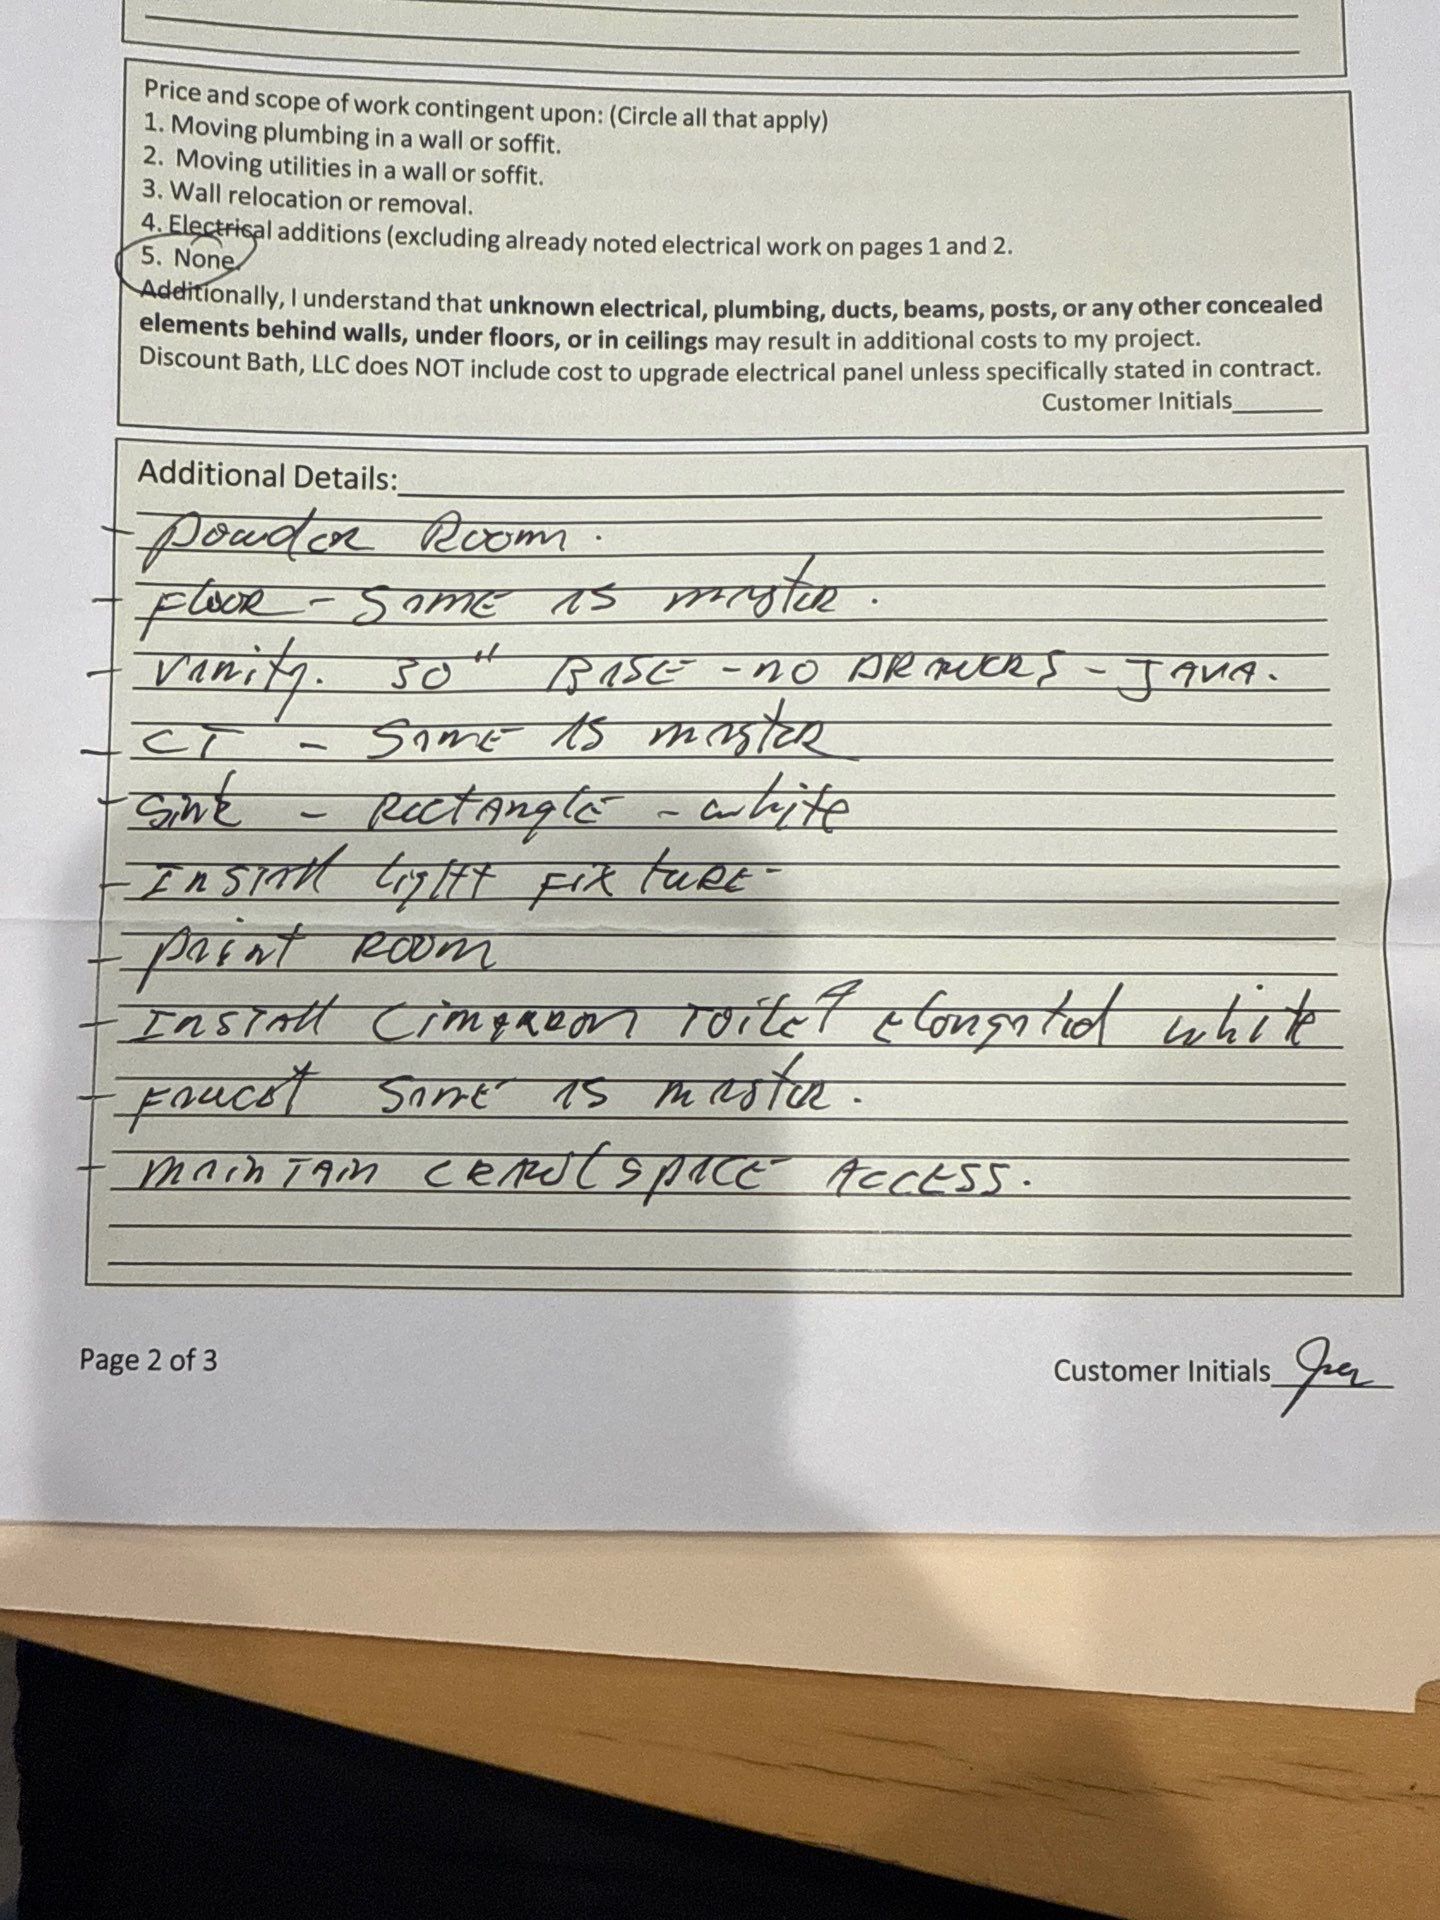 Price and scope of work contingent upon: (Circle all that apply)
1. Moving plumbing in a wall or soffit.
2. Moving utilities in a wall or soffit.
3. Wall relocation or removal.
4. Electrical additions (excluding already noted electrical work on pages 1 and 2.
5. None.
Additionally, I understand that unknown electrical, plumbing, ducts, beams, posts, or any other concealed
elements behind walls, under floors, or in ceilings may result in additional costs to my project.
Discount Bath, LLC does NOT include cost to upgrade electrical panel unless specifically stated in contract.
Customer Initials
Additional Details:
- Powder Room.
- Floor - SAME AS master.
- Vanity. 30" BASE - no DRAWERS - JAVA.
- CT - SAME AS master
- Sink - RectAnglE - white
- Install light FixturE
- paint ROOM
- Install Cimarron Toilet elongated white
- Faucet SAME AS master.
- mainTAin CRAWlspACE ACCESS.
Page 2 of 3
Customer Initials